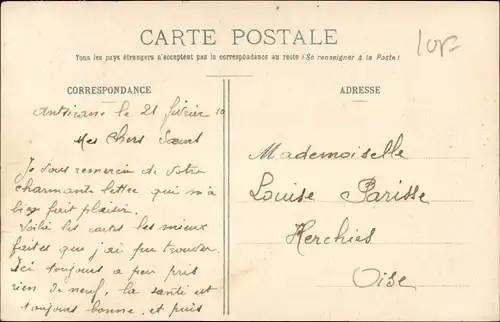 CARTE POSTALE
Tous les pays étrangers n'acceptent pas la correspondance au recto (Se renseigner à la Poste)
CORRESPONDANCE
ADRESSE
le 21 février 10
Mes Chers Soeurs
Je vous remercie de votre
charmante lettre qui m'a
bien fait plaisir.
Voilà les cartes les mieux
faites que j'ai pu trouver.
Ici toujours a peu près
rien de neuf, la santé est
toujours bonne, et puis
Mademoiselle
Louise Parisse
Herchies
Oise